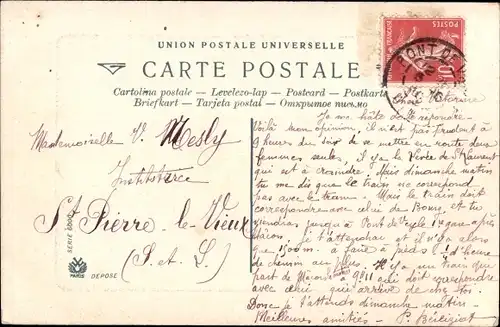 UNION POSTALE UNIVERSELLE
CARTE POSTALE
Cartolina postale — Levelezo-lap — Postcard — Postkarte
Briefkart — Tarjeta postal — Открытое письмо
POSTES
10
PONT DE
Mademoiselle V. Mesly
Institutrice
St Pierre-le-Vieux
(S. et L.)
SÉRIE
PARIS
DÉPOSÉ
Chère
Je me hâte de te répondre.
Voilà mon opinion, il n'est pas prudent à
9 heures du soir de se mettre en route deux
femmes seules, il y a le Vévée de St Laurent
qui est à craindre. Mais dimanche matin
tu me dis que le train ne correspond
pas avec le tram. Mais le train doit
correspondre avec celui de Bourg et tu
viendras jusqu'à Pont de Veyle 1e gare après
Mâcon. Je t'attendrai et il n'y a alors
que 1500 m. à faire à pied 1/4 d'heure
de chemin au plus. Il y a un train qui
part de Macon à 9h11 qui doit correspondre
avec celui qui arrive de chez toi.
Donc je t'attends dimanche matin.
Meilleures amitiés — P.